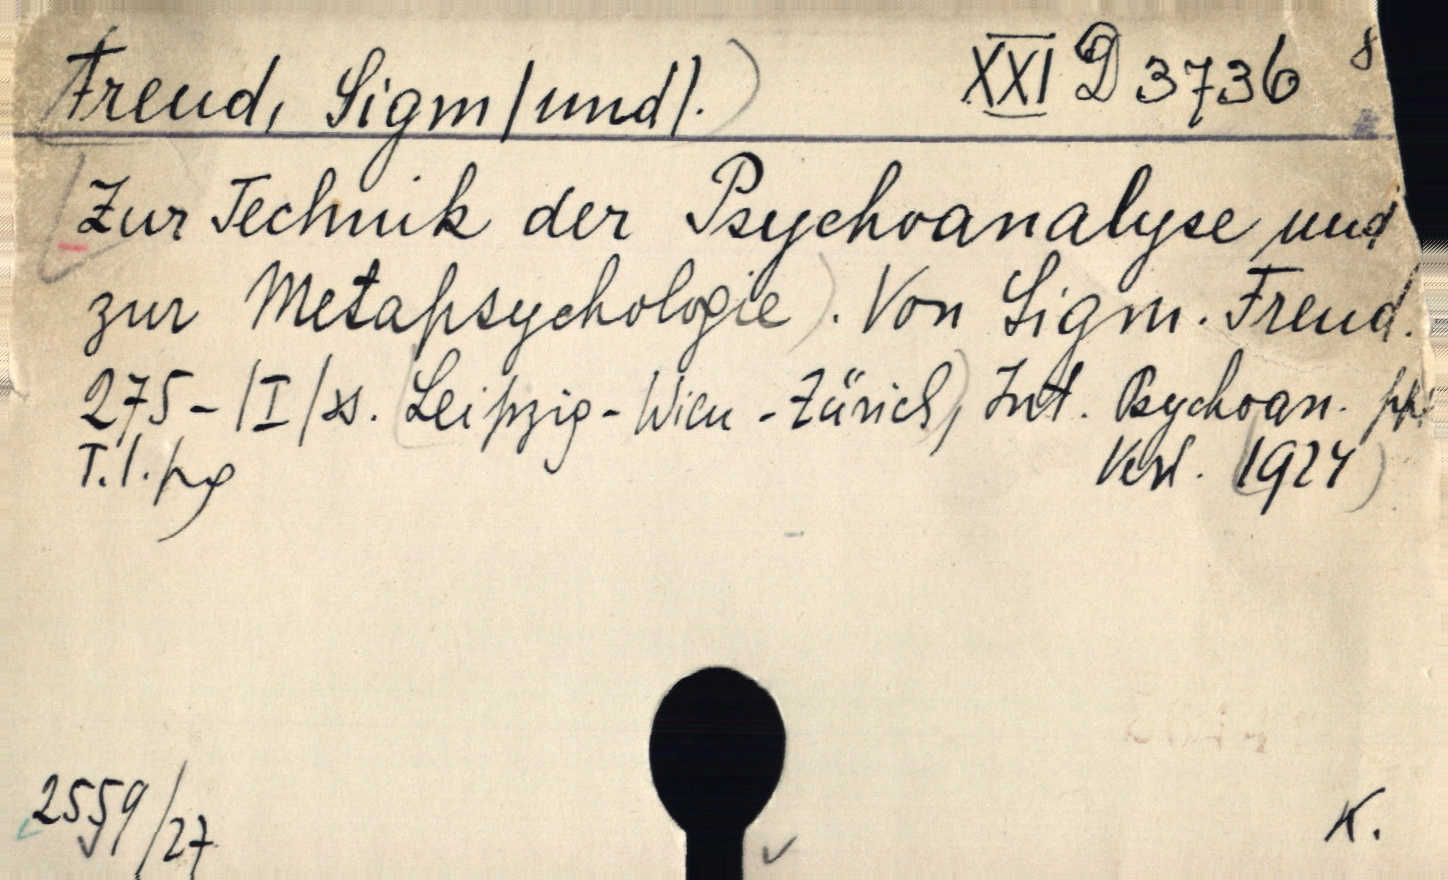 Freud, Sigm/und/. XXI D 3736 8
Zur Technik der Psychoanalyse und
zur Metapsychologie). Von Sigm. Freud.
275-/I/ss. (Leipzig-Wien-Zürich), Int. Psychoan.
T.l. Verl. (1924)
2559/27
K.